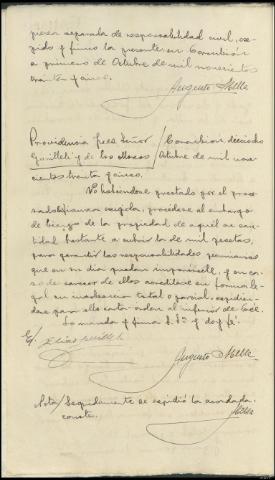 pieza separada de responsabilidad civil, ex-
pido y firmo la presente en Corcubión
a primero de Octubre de mil novecientos
treinta y cinco.
Augusto
Providencia Juez Señor / Corcubión, dieciocho
de los / Octubre de mil nove-
cientos treinta y cinco.
No habiéndose prestado por el proce-
sado fianza exigida, procédase al embargo
de bienes de la propiedad de aquél en can-
tidad bastante a cubrir la de mil pesetas,
para garantir las responsabilidades pecuniarias
que en su día puedan imponérsele, y en ca-
so de carecer de ellos acredítese en forma le-
gal su insolvencia total o parcial, expidién-
dose para ello carta-orden al inferior de Cée.
Lo mandó y firma S. Sª y doy fé.
E/.
Augusto
Nota/ Seguidamente se expidió la acordada
conste.